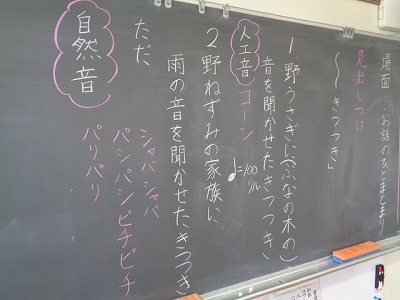 場面…お話のひとまとまり
見出しつけ
〜〜きつつき」
1 野うさぎに(ぶなの木の)
音を聞かせたきつつき
人工音 コーン
♩=100
2 野ねずみの家族に、
ただ、
雨の音を聞かせたきつつき
自然音
シャバシャバ
パシパシピチピチ
パリパリ